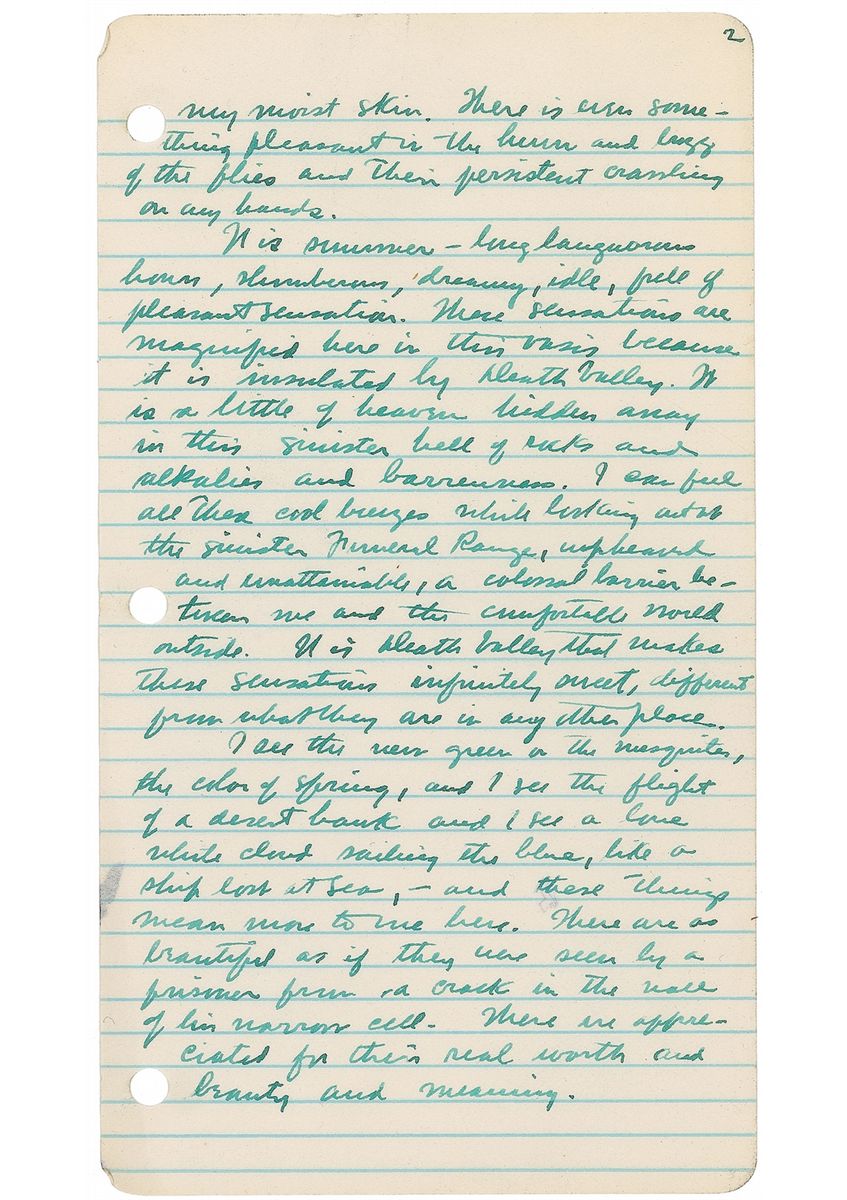 2
my moist skin. There is even some-
thing pleasant in the hum and buzz
of the flies and their persistent crawling
on my hands.
It is summer – long languorous
hours, slumberous, dreamy, idle, full of
pleasant sensation. These sensations are
magnified here in this oasis because
it is insulated by Death Valley. It
is a little of heaven hidden away
in this sinister hell of rocks and
alkalies and barrenness. I can feel
all these cool breezes while looking out at
the sinister Funeral Range, upheaved
and unattainable, a colossal barrier be-
tween me and the comfortable world
outside. It is Death Valley that makes
these sensations infinitely sweet, different
from what they are in any other place.
I see the new green on the mesquites,
the color of spring, and I see the flight
of a desert hawk and I see a lone
white cloud sailing the blue, like a
ship lost at sea, – and these things
mean more to me here. These are as
beautiful as if they were seen by a
prisoner from a crack in the wall
of his narrow cell. These are appre-
ciated for their real worth and
beauty and meaning.